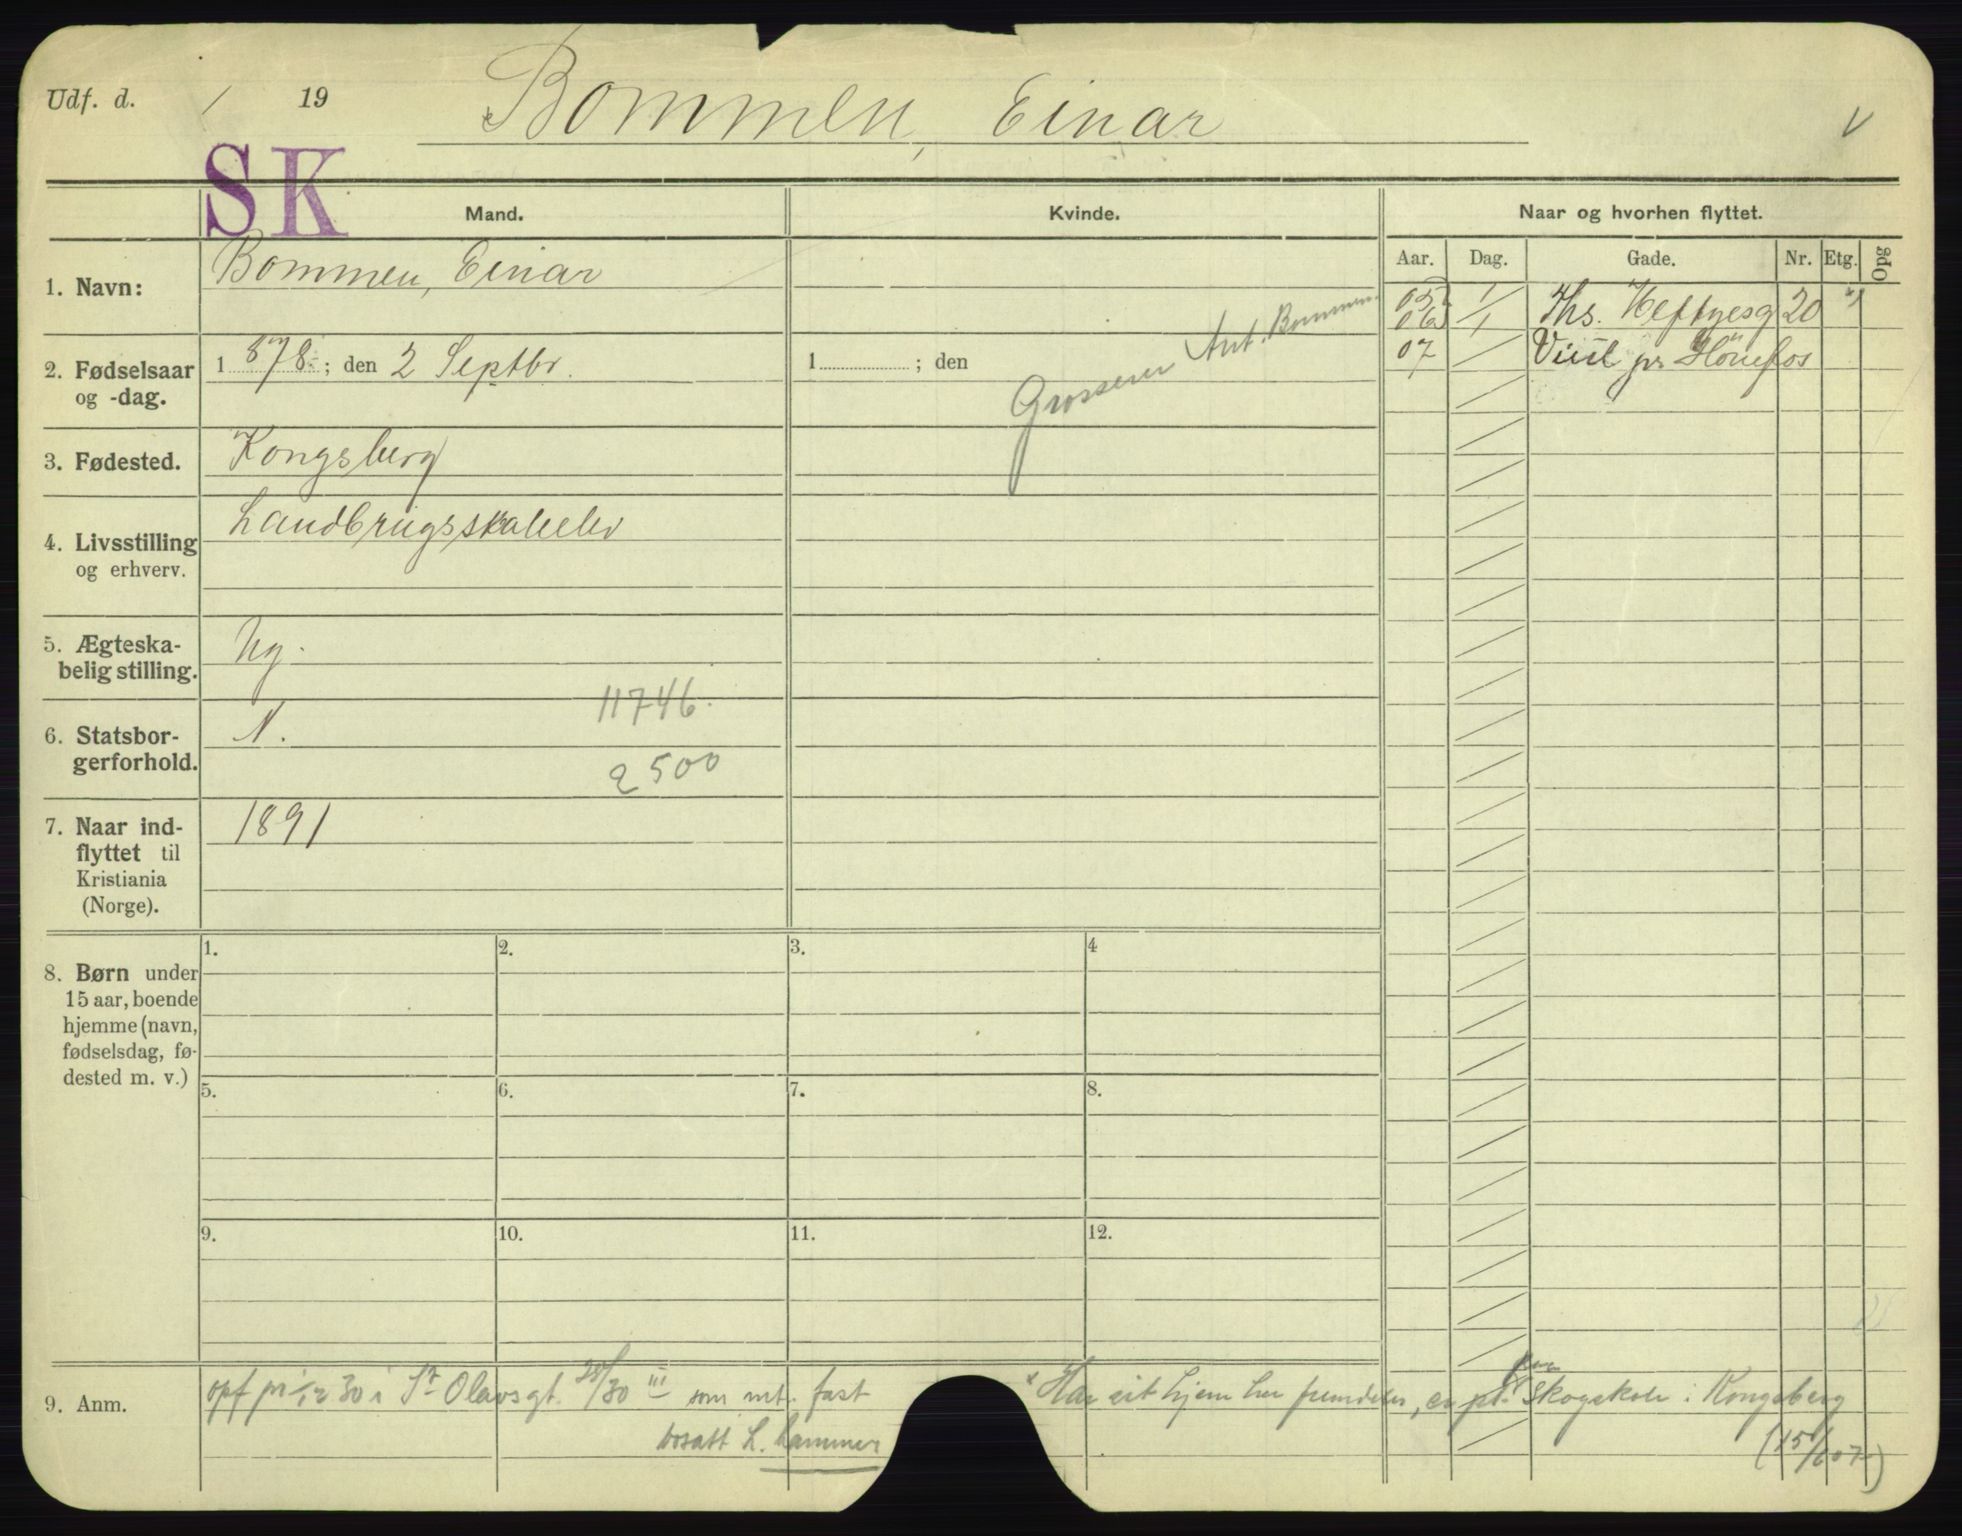 Udf. d. / 19
Bommen, Einar
V
SK
Mand.
Kvinde.
Naar og hvorhen flyttet.
Aar. Dag. Gade. Nr. Etg. Opg
1. Navn:
Bommen, Einar
05 1/ Ths. Heftyesg 20 x)
06 /1
07 / pr Hönefos
2. Fødselsaar
og -dag.
1 878 ; den 2 Septbr.
1 ; den
Grosserer Ant. Bommen.
3. Fødested.
Kongsberg
4. Livsstilling
og erhverv.
Landbrugsskoleelev
5. Ægteska-
belig stilling.
Ug.
6. Statsbor-
gerforhold.
N.
11746.
2500
7. Naar ind-
flyttet til
Kristiania
(Norge).
1891
8. Børn under
15 aar, boende
hjemme (navn,
fødselsdag, fø-
dested m. v.)
1. 2. 3. 4
5. 6. 7. 8.
9. 10. 11. 12.
9. Anm.
opf pr 30 i St Olavsgt. /30 III som mt. fast
bosatt L. hammer
x Har sit hjem her fremdeles, er pt. paa Skogskole i Kongsberg
(15/6 07)